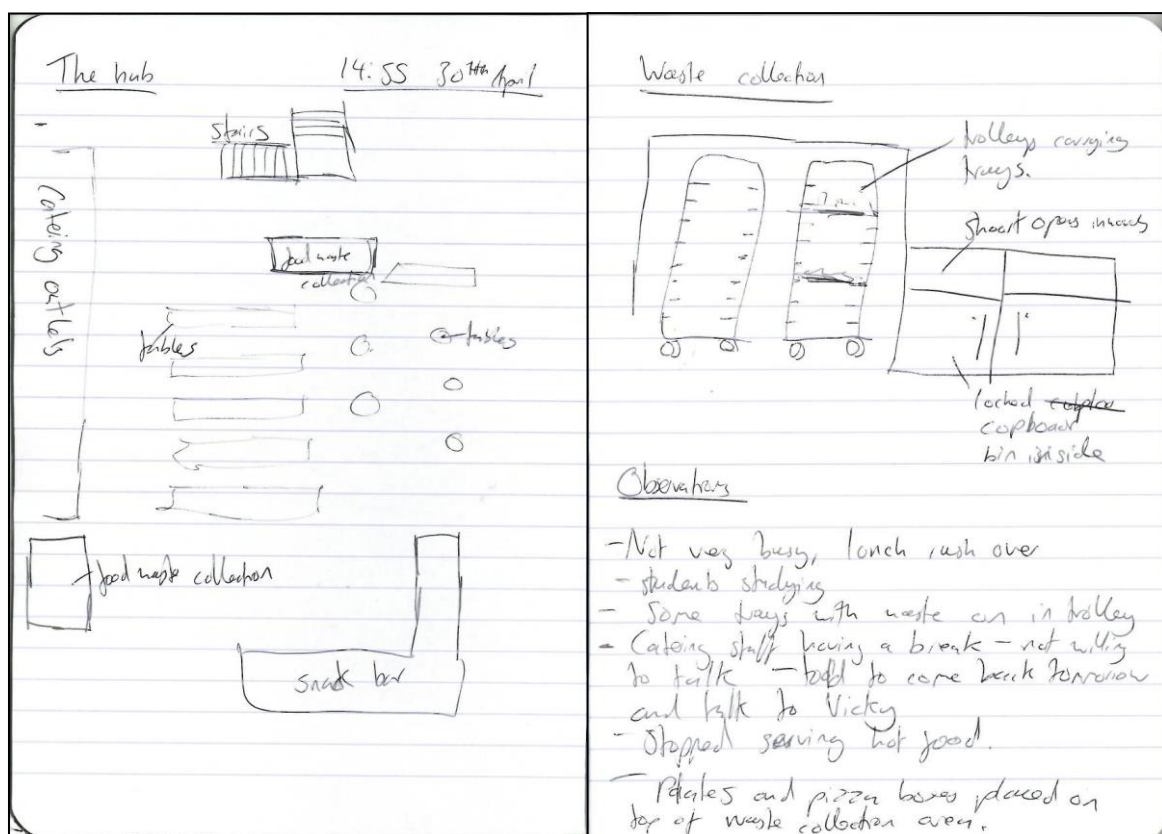 The hub
14:55 30th April
stairs
Cateing outlets
food waste
collection
tables
tables
food waste collection
snak bar
Waste collection
trolleys carrying
trays.
opens inwards
locked
cupboar
bin inside
Observations
- Not very busy, lunch rush over
- students studying
- Some trays with waste on in trolley
- Cateing staff having a break - not willing
to talk - told to come back tomorrow
and talk to Vicky
- Stopped serving hot food.
- Plates and pizza boxes placed on
top of waste collection area.